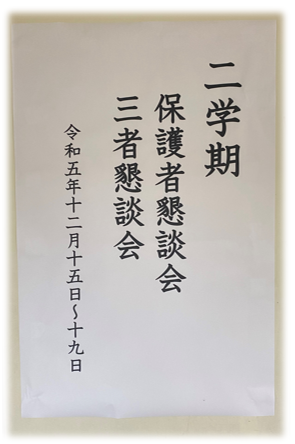 二学期
保護者懇談会
三者懇談会
令和五年十二月十五日~十九日